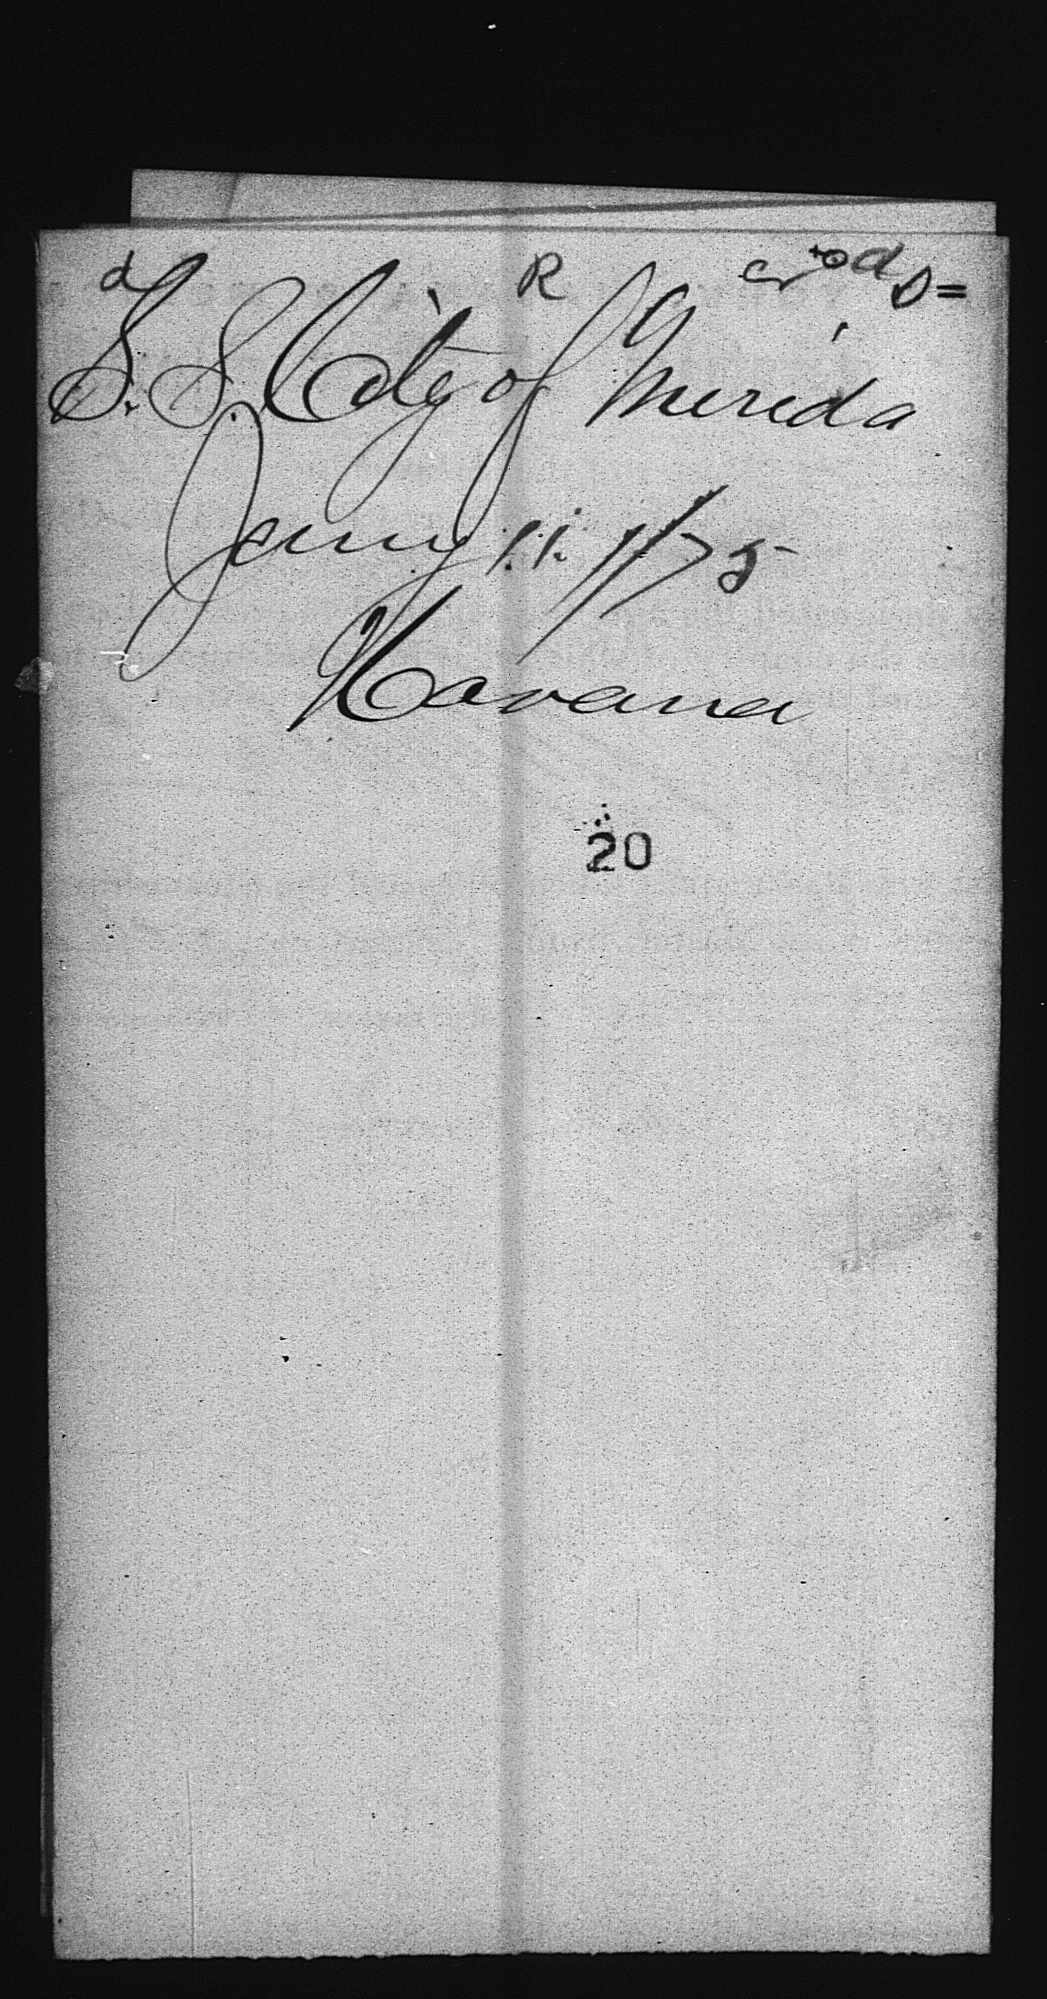 d R
S. S. City of Merida
Jany 11. 1875
Havana
20